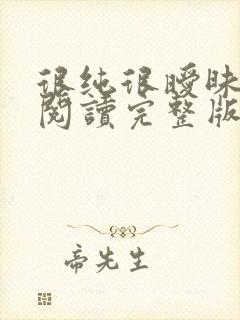 很純很曖昧
閱讀完整版
帝先生